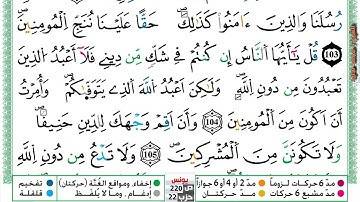 رُسُلَنَا وَالَّذِينَ ءَامَنُوا۟ كَذَٰلِكَ ۚ حَقًّا عَلَيْنَا نُنجِ الْمُؤْمِنِينَ
١٠٣ قُلْ يَٰٓأَيُّهَا النَّاسُ إِن كُنتُمْ فِي شَكٍّ مِّن دِينِي فَلَآ أَعْبُدُ الَّذِينَ
تَعْبُدُونَ مِن دُونِ اللَّهِ وَلَٰكِنْ أَعْبُدُ اللَّهَ الَّذِي يَتَوَفَّىٰكُمْ ۖ وَأُمِرْتُ
أَنْ أَكُونَ مِنَ الْمُؤْمِنِينَ ١٠٤ وَأَنْ أَقِمْ وَجْهَكَ لِلدِّينِ حَنِيفًا
وَلَا تَكُونَنَّ مِنَ الْمُشْرِكِينَ ١٠٥ وَلَا تَدْعُ مِن دُونِ اللَّهِ
مدّ 6 حركات لزوماً مدّ 2 أو 4 أو 6 جوازاً يونس ص 220 إخفاء، ومواقع الغُنَّة (حركتان) تفخيم
مدّ مشبع 6 حركات مدّ حركتان حزب 22 إدغام، وما لا يُلفَظ قلقلة